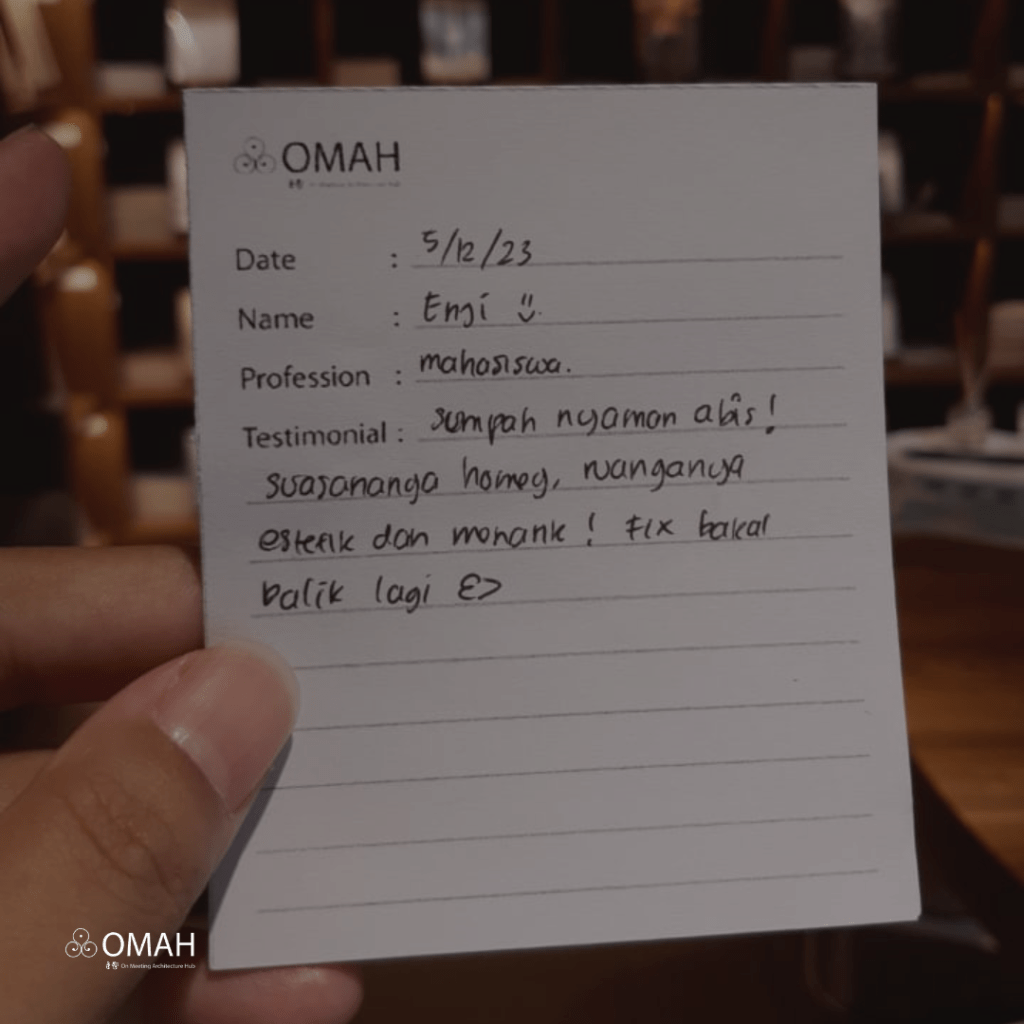 OMAH
Date : 5/12/23
Name : Enji
Profession : mahasiswa.
Testimonial : sumpah nyaman abis!
suasananya homey, ruanganya
estetik dan menarik! Fix bakal
balik lagi
OMAH
On Meeting Architecture Hub